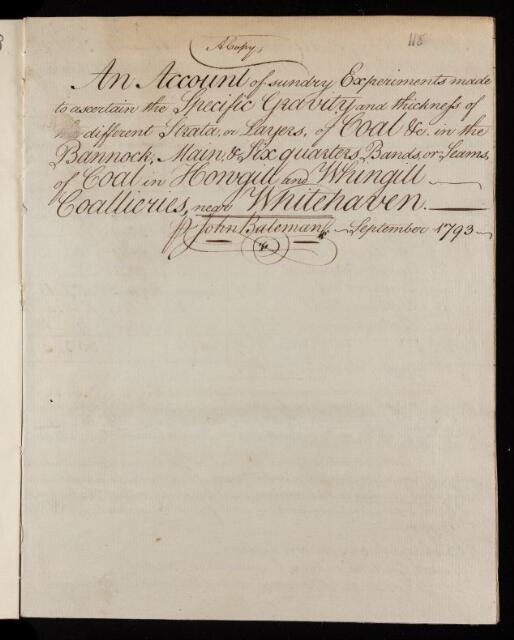 A Copy,
118
An Account of sundry Experiments made
to ascertain the Specific Gravity and thickness of
different Strata, or Layers, of Coal &c. in the
Bannock, Main, & Six quarters Bands, or Seams,
of Coal in Howgill and Whingill
Coallieries, near Whitehaven.
John Bateman. September 1793